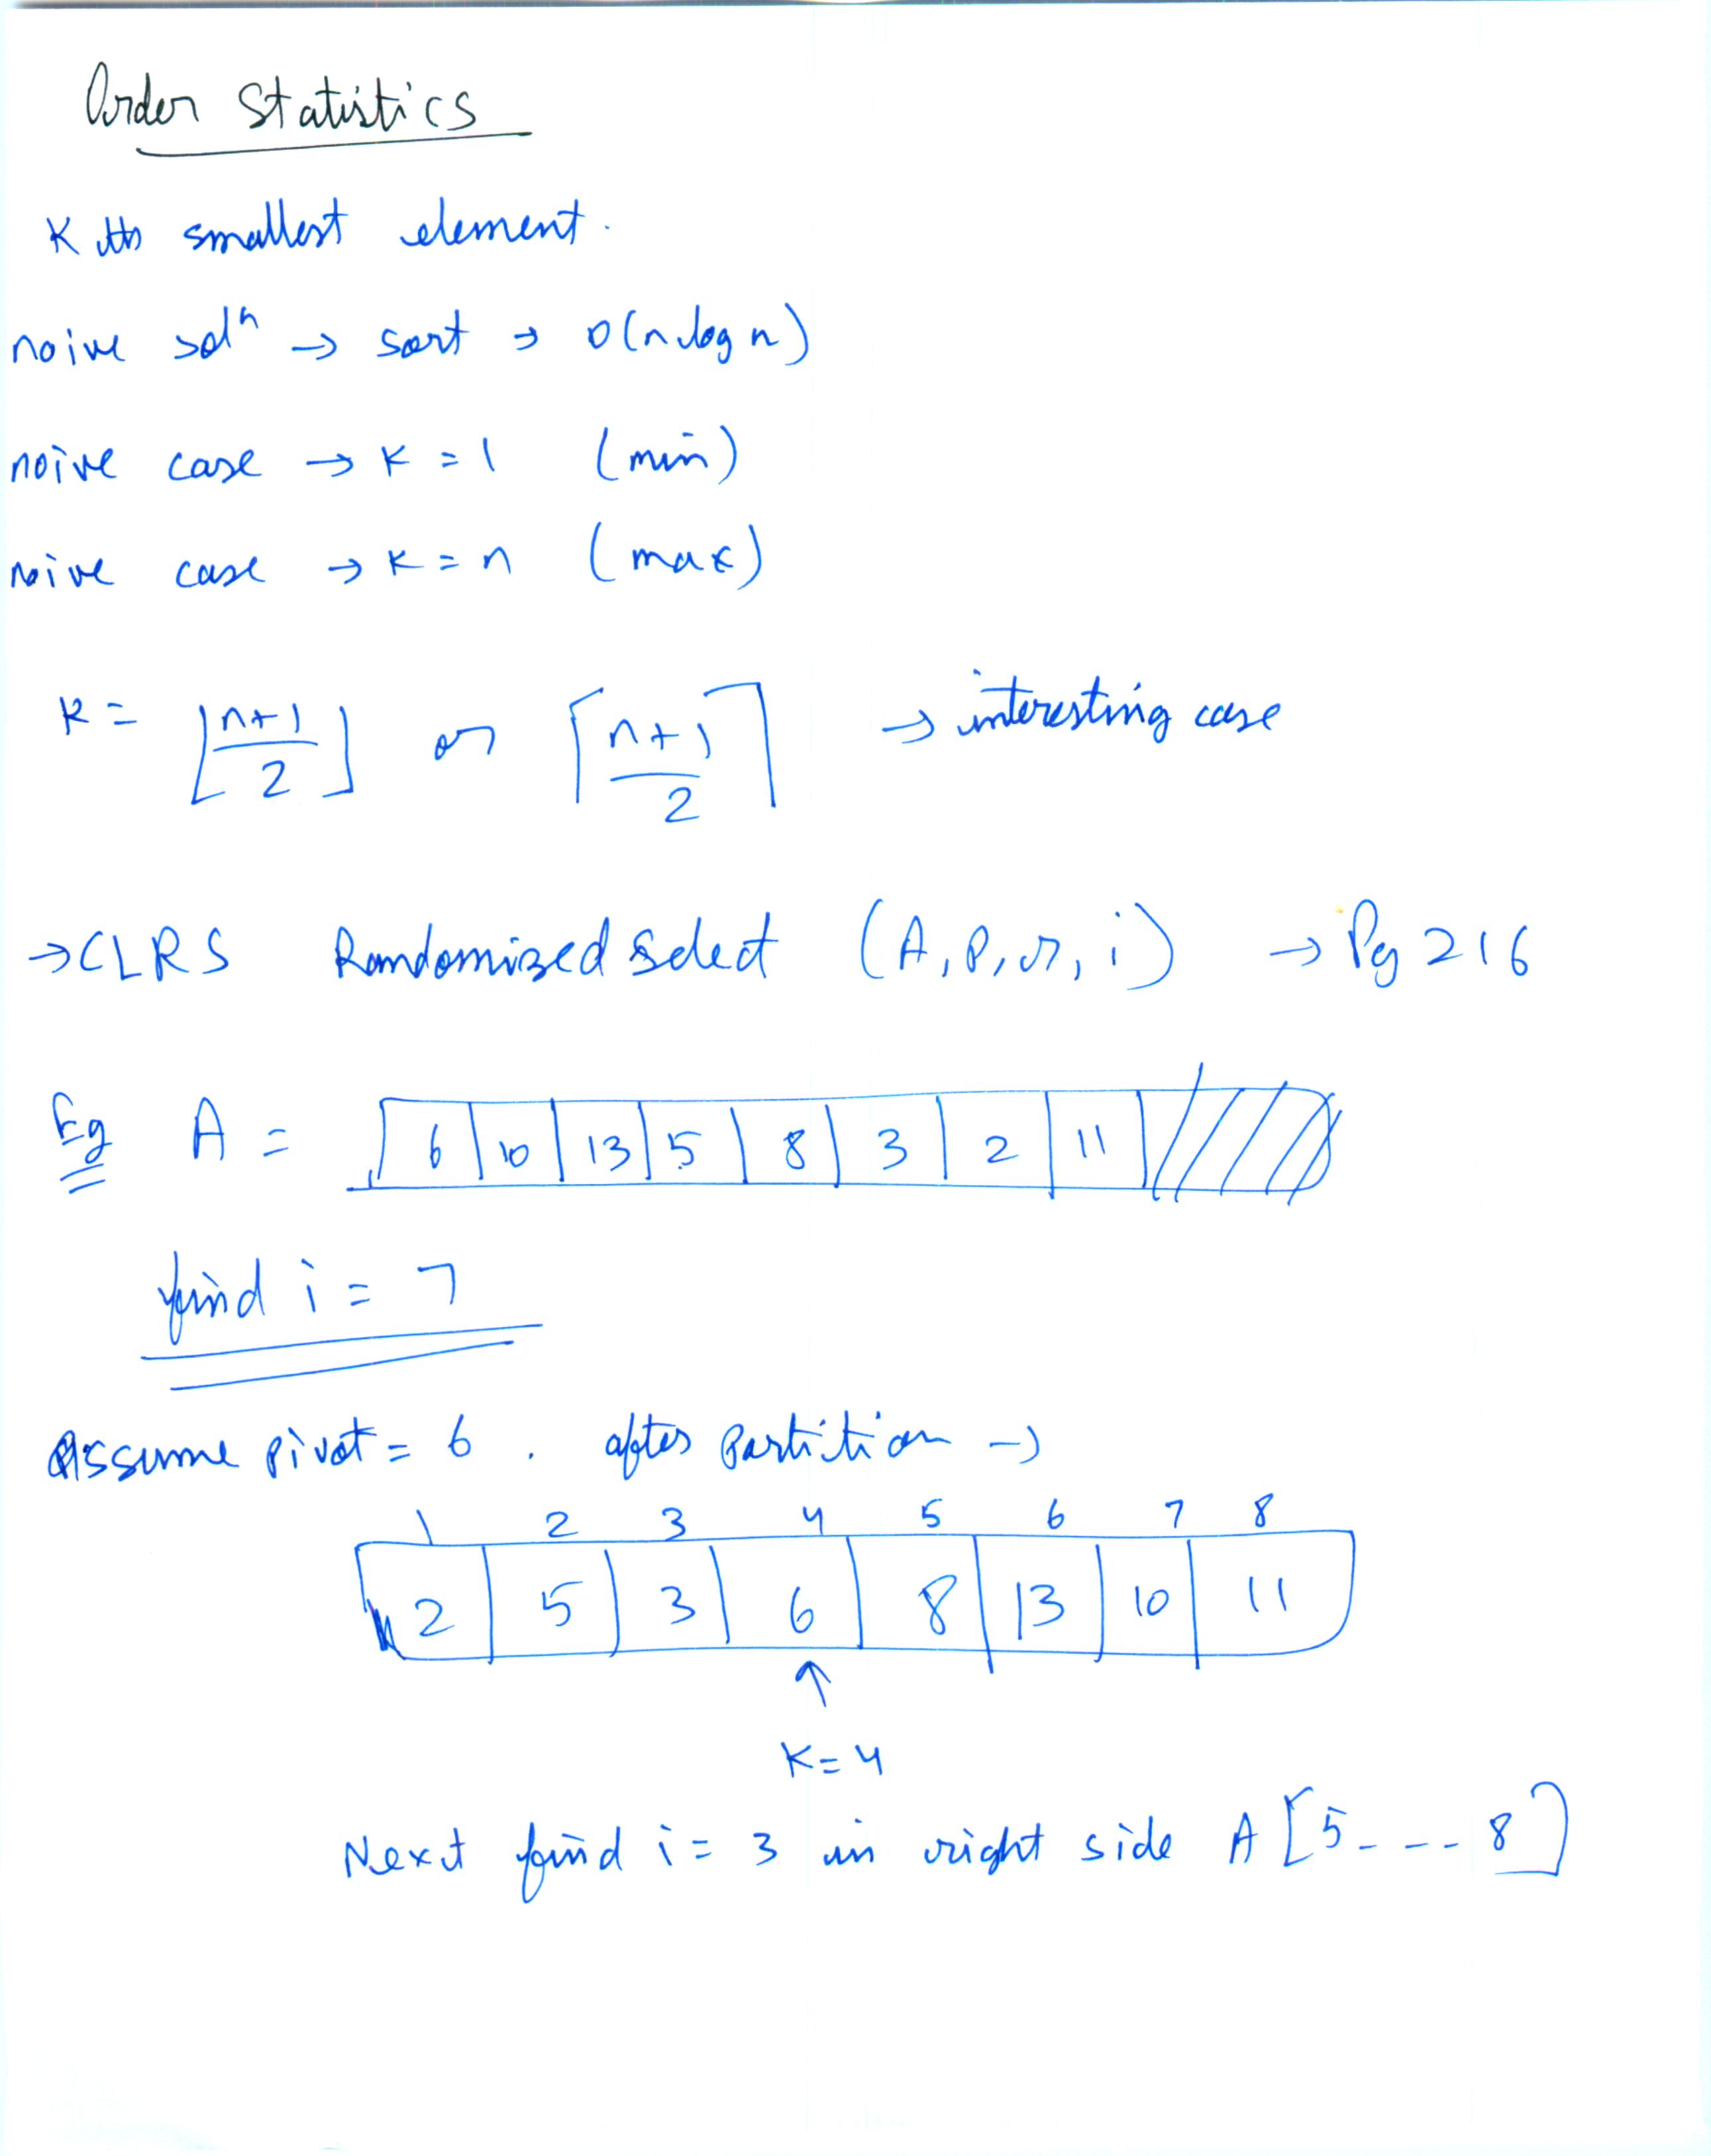 Order Statistics
K th smallest element.
naive solⁿ → sort → O(n log n)
naive case → K = 1 (min)
naive case → K = n (max)
K = ⌊(n+1)/2⌋ or ⌈(n+1)/2⌉ → interesting case
→ CLRS Randomized Select (A, P, r, i) → Pg 216
Eg A = 6 10 13 5 8 3 2 11
find i = 7
Assume pivot = 6 . after Partition →
1 2 3 4 5 6 7 8
2 5 3 6 8 13 10 11
↑
K = 4
Next find i = 3 in right side A [5 - - - 8]